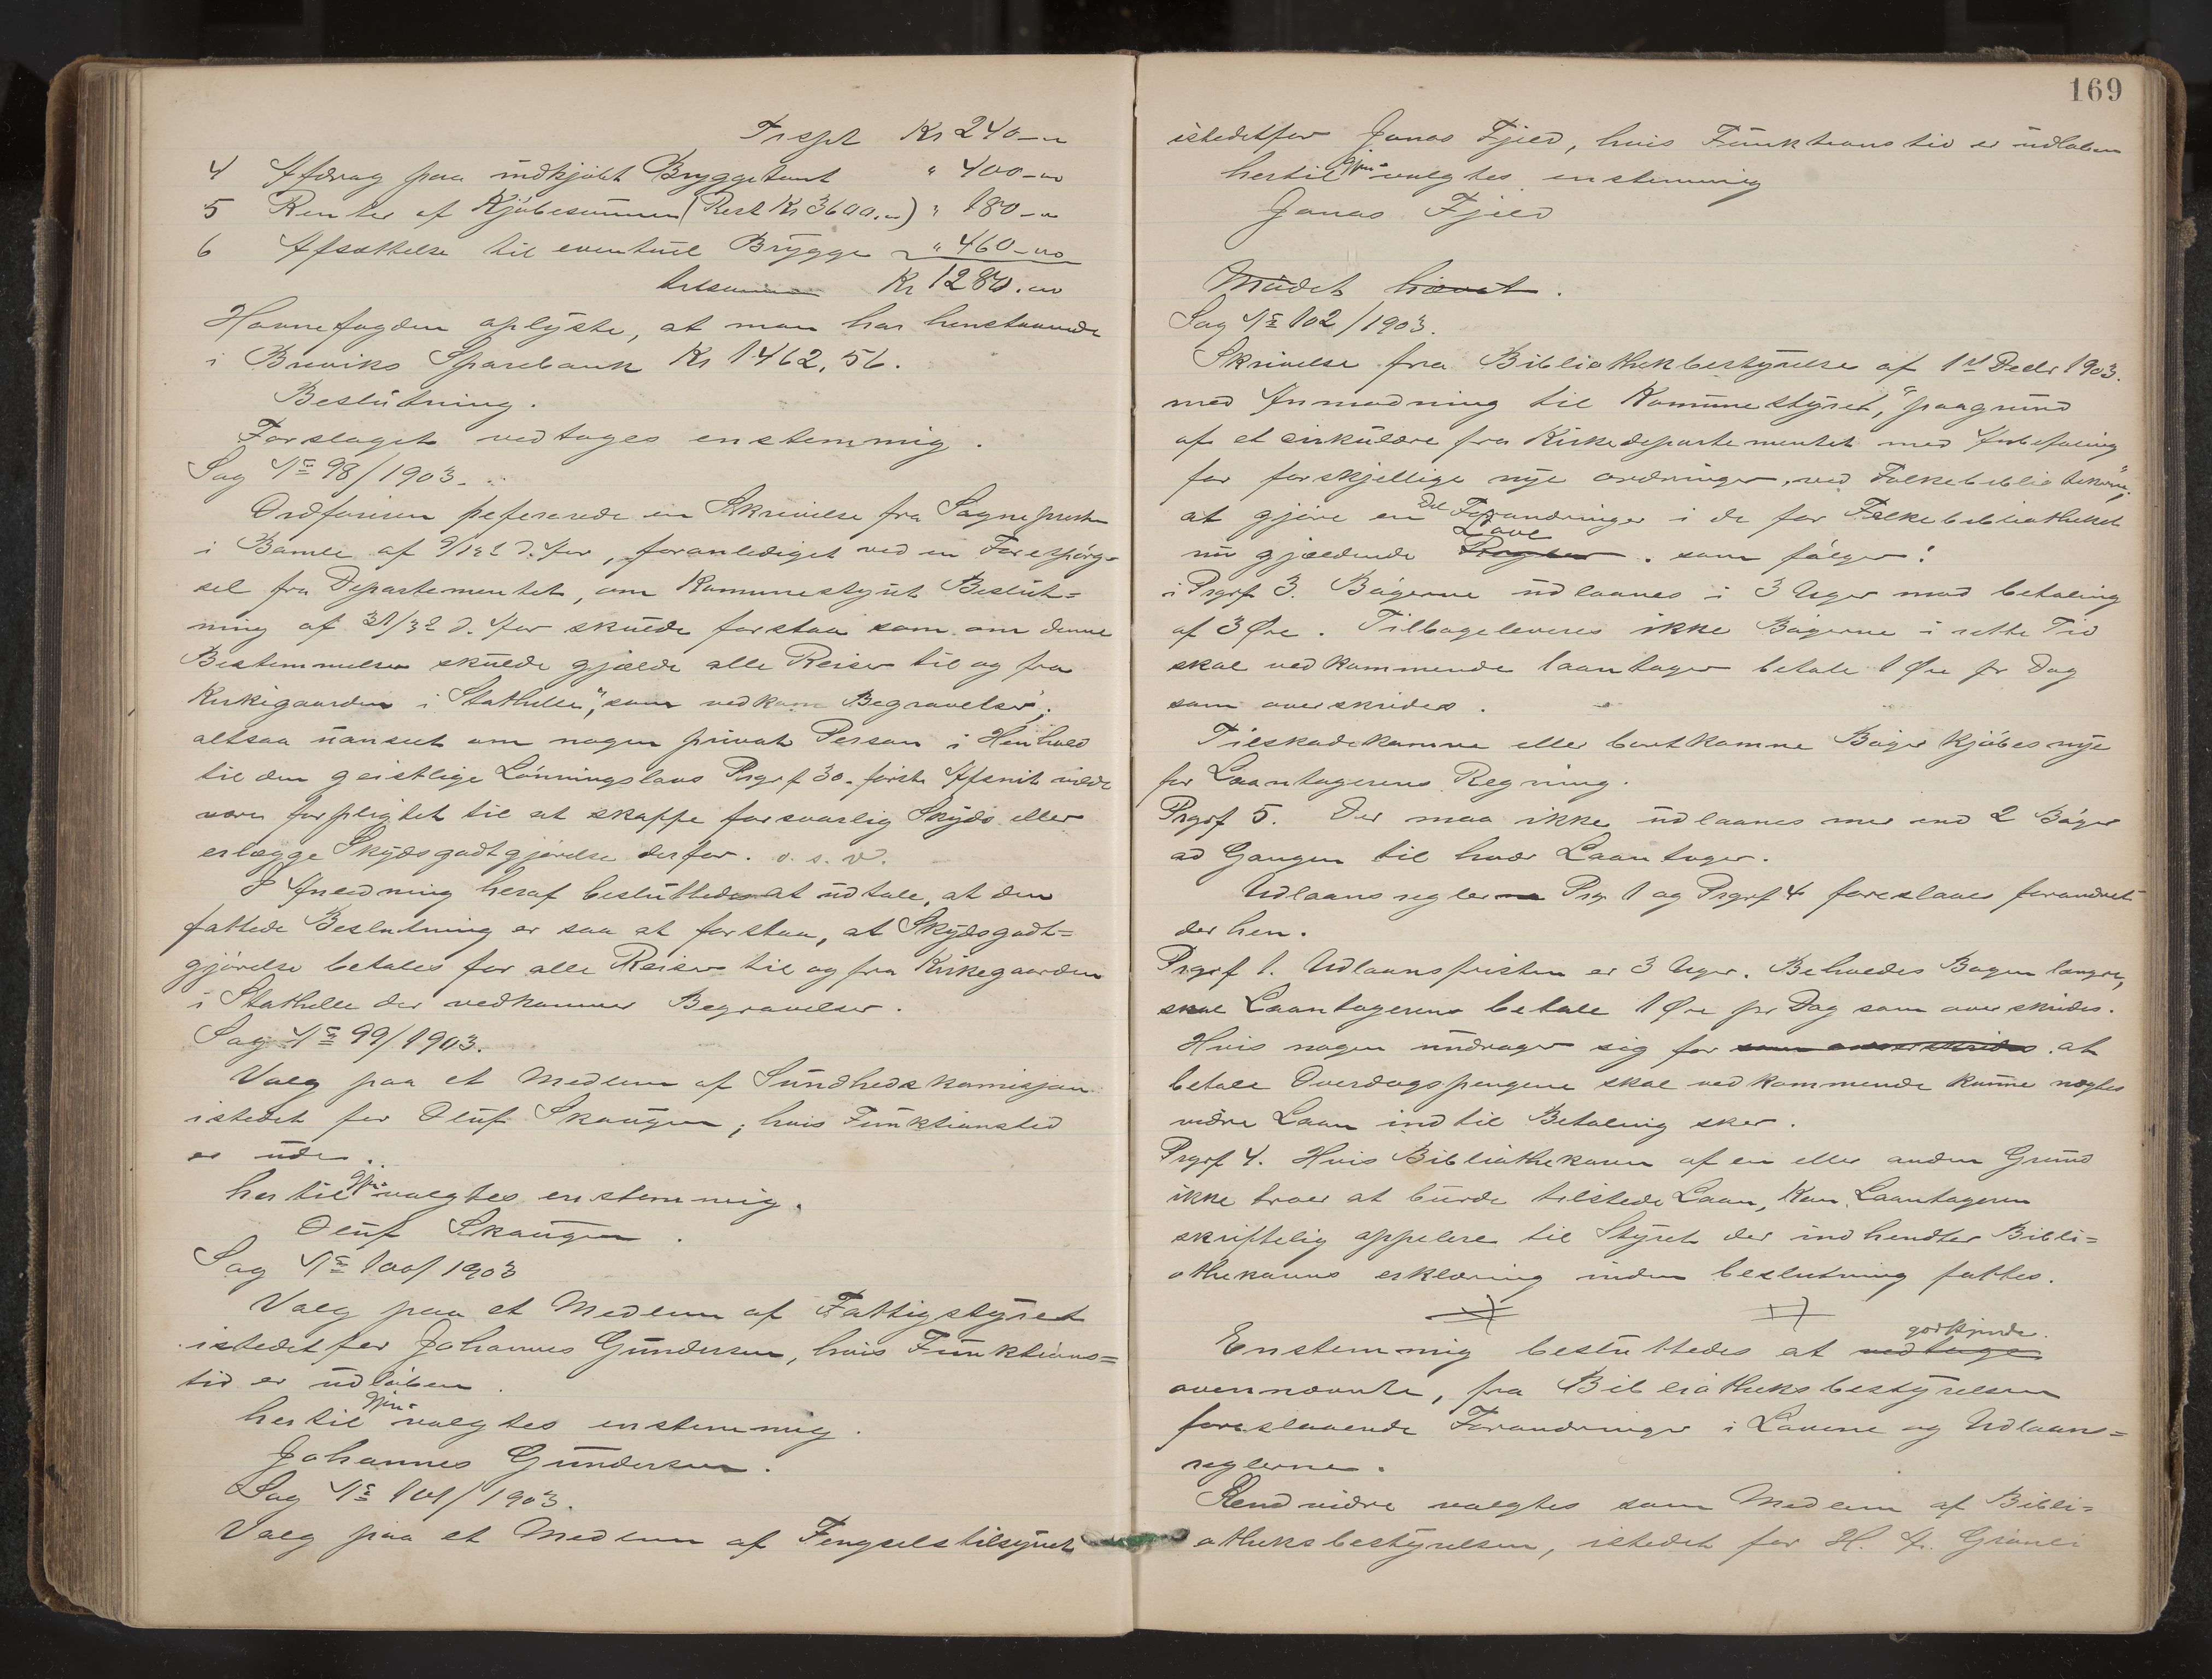 Trspt Kr 240-"
4 Afdrag paa indkjöbt Bryggetomt " 400-"
5 Renter af Kjöbesummen (Rest Kr 3600.") " 180-"
6 Afsættelse til eventuel Brygge " 460-"
tilsammen Kr 1280."
Havnefogden oplyste, at man har henstaaende
i Breviks Sparebank Kr 1462,56.
Beslutning.
Forslaget vedtages enstemmig.
Sag No 98/1903.
Ordföreren refererede en Skrivelse fra Sogneprsten
i Bamle af 9/12 d. Aar, foranlediget ved en Forespörg=
sel fra Departementet, om Kommunestyret Beslut=
ning af 31/3 d. Aar skulde forstaa som om denne
Bestemmelser skulde gjælde alle Reiser til og fra
Kirkegaarden i Stathelle", som vedkom Begravelser;
altsaa uanseet om nogen privat Person i Henhold
til den geistlige Lönningslovs Prgrf 30. förste Afsnit vilde
være forpligtet til at skaffe forsvarlig Skyds eller
erlægge Skydsgodtgjörelse derfor. o. s. v.
I Anledning heraf besluttedes at udtale, at den
fattede Beslutning er saa at forstaa, at Skydsgodt=
gjörelse betales for alle Reiser til og fra Kirkegaarden
i Stathelle der vedkommer Begravelser.
Sag No 99/1903.
Valg paa et Medlem af Sundhedskomisjon
istedet for Oluf Skaugen, hvis Funktionstid
er ude.
hertil Gjen- valgtes enstemmig.
Oluf Skaugen.
Sag No 100/1903
Valg paa et Medlem af Fattigstyret
istedetfor Johannes Gundersen, hvis Funktions=
tid er udlöben.
hertil Gjen- valgtes enstemmig.
Johannes Gundersen.
Sag No 101/1903.
Valg paa et Medlem af Fengselstilsynet
169
istedetfor Jonas Fjeld, hvis Funktionstid er udloben
hertil Gjen- valgtes enstemmig
Jonas Fjeld
Mödet hævet.
Sag No 102/1903.
Skrivelse fra Bibliothekbestyrelse af 1st Decbr 1903.
med Anmodning til Komunestyret, "paagrund
af et cirkulære fra Kirkedepartementet med Anbefaling
for forskjellige nye ordninger, ved Folkebibliotekerne",
at gjöre en Del Forandringer i de for Folkebibliotheket
nu gjældende Regler Love som fölger:
i Prgrf 3. Bögerne udlaanes i 3 Uger mod betaling
af 3 Øre. Tilbageleveres ikke Bögerne i rette Tid
skal vedkommende laantager betale 1 Øre pr Dag
som overskrides.
Tilskadekomne eller bortkomne Böger kjöbes nye
for Laantagerens Regning.
Prgrf 5. Der maa ikke udlaanes mer end 2 Böger
ad Gangen til hver Laantager.
Udlaansreglerne Prg 1 og Prgrf 4 foreslaaes forandret
der hen.
Prgrf 1. Udlaansfristen er 3 Uger. Beholdes Bogen længre,
skal Laantageren betale 1 Øre pr Dag som overskrides.
Hvis nogen unddrager sig for som overskrides at
betale Overdagspengene skal vedkommende kunne nægtes
vidre Laan indtil Betaling sker.
Prgrf 4. Hvis Bibliothekaren af en eller anden Grund
ikke troer at burde tilstede Laan, kan Laantageren
skriftelig appelere til Styret der indhendter Bibli=
othekarens erklæring inden beslutning fattes.
Enstemmig besluttedes at vedtage godkjende
ovennævnte, fra Bibliotheksbestyrelsen
foreslaaende Forandringer i Lovene og Udlaans=
reglerne.
Rend vidre valgtes som Medlem af Bibli=
otheksbestyrelsen, istedet for H. A. Grönli